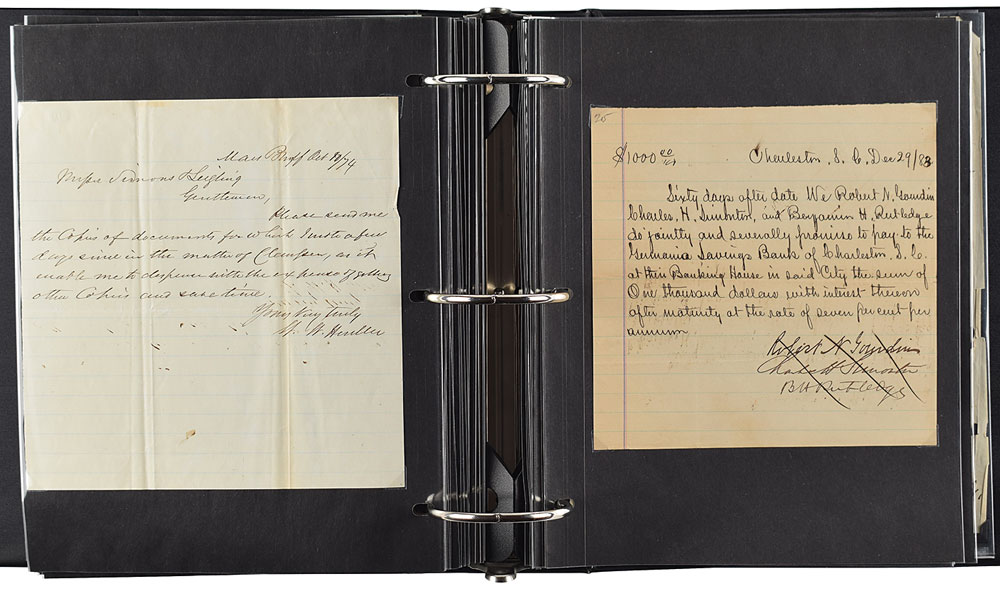 Mars Bluff Oct 19/74
Messrs Simons & Siegling
Gentlemen,
Please send me
the Copies of documents for which I wrote a few
days since in the matter of Clempson, as it
enable me to dispense with the expense of getting
other Copies and save time.
Yours Very truly
W. W.
25
$1000 00/100 Charleston, S. C. Dec 29/83
Sixty days after date We Robert N. Gourdin
Charles, H. Simonton, and Benjamin H. Rutledge
do jointly and severally promise to pay to the
Germania Savings Bank of Charleston, S. C.
at their Banking House in said City the sum of
One thousand dollars with interest thereon
after maturity at the rate of seven per cent per
annum.
Robert N Gourdin
Charles H Simonton
B H Rutledge